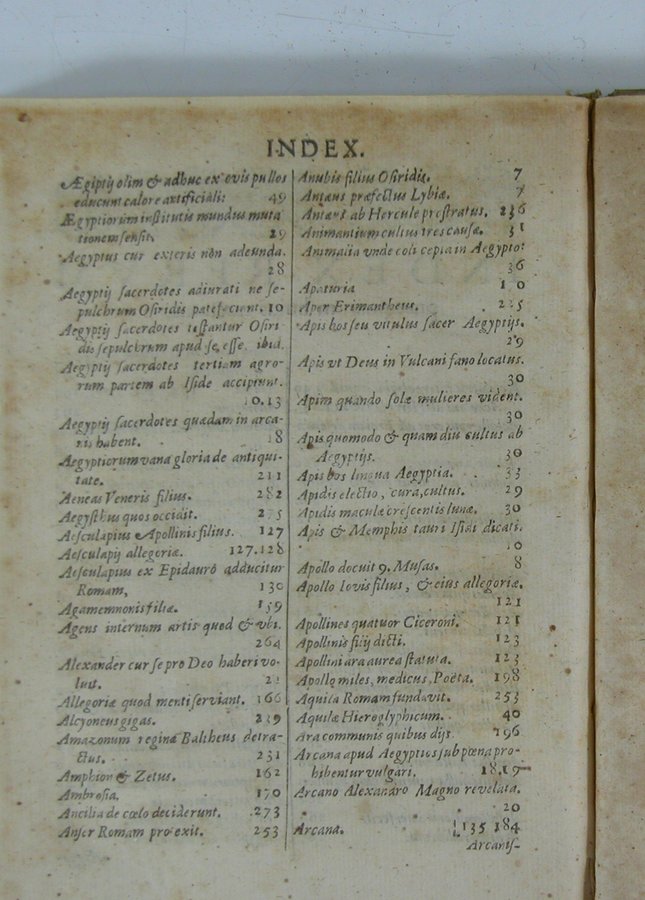 INDEX.
Ægiptij olim & adhuc ex ovis pullos
educunt calore artificiali: 49
Ægyptiorum institutis mundus muta
tionem sensit. 29
Aegyptus cur exteris non adeunda.
28
Aegyptij sacerdotes adiurati ne se-
pulchrum Osiridis patefaciant. 10
Aegyptij sacerdotes testantur Osiri
dis sepulchrum apud se esse. ibid.
Aegyptij sacerdotes tertiam agro-
rum partem ab Iside accipiunt.
10.13
Aegyptij sacerdotes quædam in arca-
nis habent. 18
Aegyptiorum vana gloria de antiqui-
tate. 211
Aeneas Veneris filius. 282
Aegysthus quos occidit. 275
Aesculapius Apollinis filius. 127
Aesculapij allegoriæ. 127.128
Aesculapius ex Epidauro adducitur
Romam, 130
Agamemnonis filiæ. 159
Agens internum artis quod & ubi.
264
Alexander cur se pro Deo haberi vo-
luit. 21
Allegoriæ quod menti serviant. 166
Alcyoneus gigas. 239
Amazonum reginæ Baltheus detra-
ctus. 231
Amphion & Zetus. 162
Ambrosia. 170
Ancilia de cœlo deciderunt. 273
Anser Romam pro exit. 253
Anubis filius Osiridis. 7
Antæus præfectus Lybiæ. 7
Antæus ab Hercule prostratus. 236
Animantium cultus tres causæ. 31
Animalia unde coli cepta in Aegypto:
36
Apaturia 190
Aper Erimantheus. 225
Apis bos seu vitulus sacer Aegyptijs.
29
Apis vt Deus in Vulcani fano locatus.
30
Apim quando solæ mulieres vident.
30
Apis quomodo & quam diu cultus ab
Aegyptijs. 30
Apis bos lingua Aegyptia. 33
Apidis electio, cura, cultus. 29
Apidis maculæ crescentis lunæ. 30
Apis & Memphis tauri Isidi dicati.
10
Apollo docuit 9. Musas. 8
Apollo Iovis filius, & eius allegoriæ.
121
Apollines quatuor Ciceroni. 121
Apollinis filij dicti. 123
Apollini ara aurea statuta. 123
Apollo miles, medicus, Poëta. 198
Aquila Romam fundavit. 253
Aquilæ Hieroglyphicum. 40
Ara communis quibus dijs 196
Arcana apud Aegyptios sub pœna pro-
hibentur vulgari. 18.19
Arcano Alexandro Magno revelata.
20
Arcana. 135 184
Arcanis-